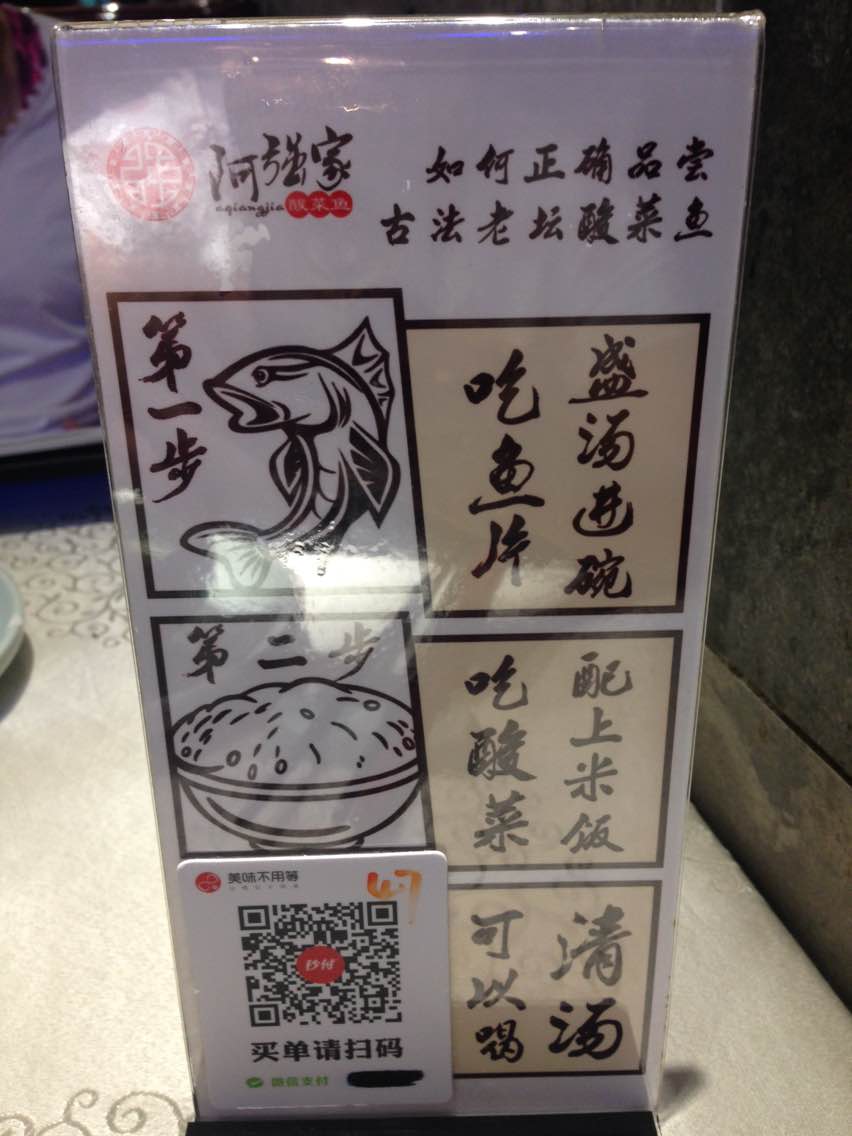 阿强家
aqiangjia 酸菜鱼
如何正确品尝
古法老坛酸菜鱼
第一步
盛汤进碗
吃鱼片
第二步
配上米饭
吃酸菜
清汤
可以喝
美味不用等
47
秒付
买单请扫码
微信支付